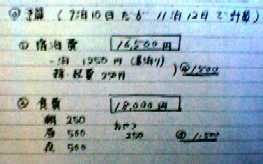 ② 予算 (7泊10日だが 11泊12日で計算)
① 宿泊費 16,500円
一泊 1250円 (素泊り)
諸経費 250円 ) @1,500
② 食費 18,000円
朝 250
昼 500 おやつ 250 @1,500
夜 500